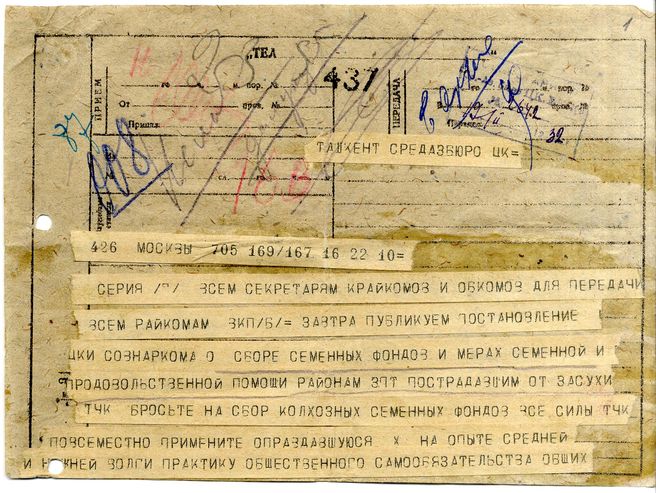 1
„ТЕЛ
437
ПРИЕМ
ПЕРЕДАЧА
м. пор. №
го м. пор. №
От пров. №
пров. №
Принял
87
008
32
ТАШКЕНТ СРЕДАЗБЮРО ЦК=
426 МОСКВЫ 705 169/167 16 22 10=
СЕРИЯ ВСЕМ СЕКРЕТАРЯМ КРАЙКОМОВ И ОБКОМОВ ДЛЯ ПЕРЕДАЧИ
ВСЕМ РАЙКОМАМ ВКП/Б/= ЗАВТРА ПУБЛИКУЕМ ПОСТАНОВЛЕНИЕ
ЦКИ СОВНАРКОМА О СБОРЕ СЕМЕННЫХ ФОНДОВ И МЕРАХ СЕМЕННОЙ И
ПРОДОВОЛЬСТВЕННОЙ ПОМОЩИ РАЙОНАМ ЗПТ ПОСТРАДАВШИМ ОТ ЗАСУХИ
ТЧК БРОСЬТЕ НА СБОР КОЛХОЗНЫХ СЕМЕННЫХ ФОНДОВ ВСЕ СИЛЫ ТЧК
ПОВСЕМЕСТНО ПРИМЕНИТЕ ОПРАВДАВШУЮСЯ Х НА ОПЫТЕ СРЕДНЕЙ
И НИЖНЕЙ ВОЛГИ ПРАКТИКУ ОБЩЕСТВЕННОГО САМООБЯЗАТЕЛЬСТВА ОБЩИХ